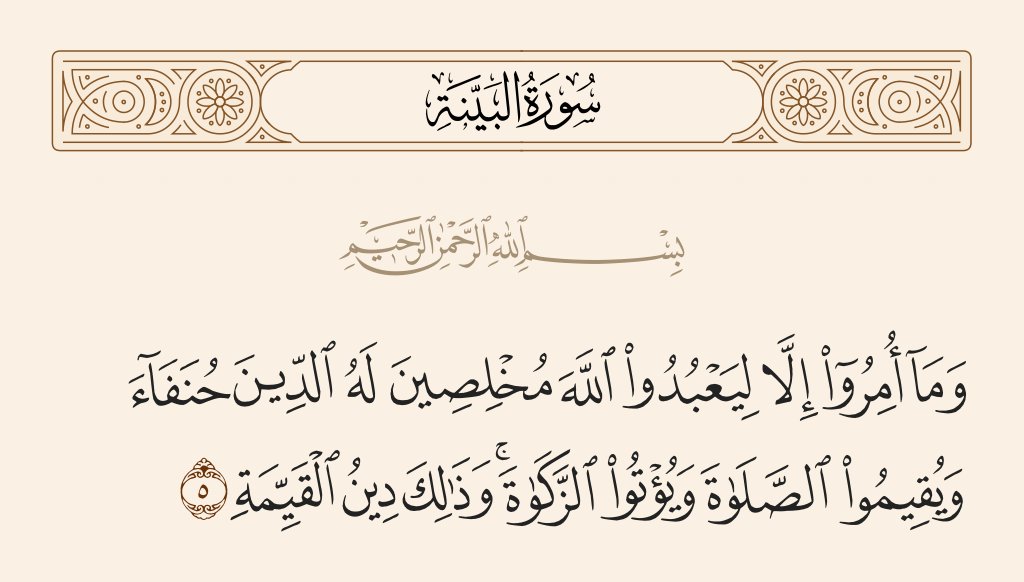 سُورَةُ البَيِّنَةِ
بِسْمِ ٱللَّهِ ٱلرَّحْمَٰنِ ٱلرَّحِيمِ
وَمَآ أُمِرُوٓا۟ إِلَّا لِيَعْبُدُوا۟ ٱللَّهَ مُخْلِصِينَ لَهُ ٱلدِّينَ حُنَفَآءَ
وَيُقِيمُوا۟ ٱلصَّلَوٰةَ وَيُؤْتُوا۟ ٱلزَّكَوٰةَ ۚ وَذَٰلِكَ دِينُ ٱلْقَيِّمَةِ ٥